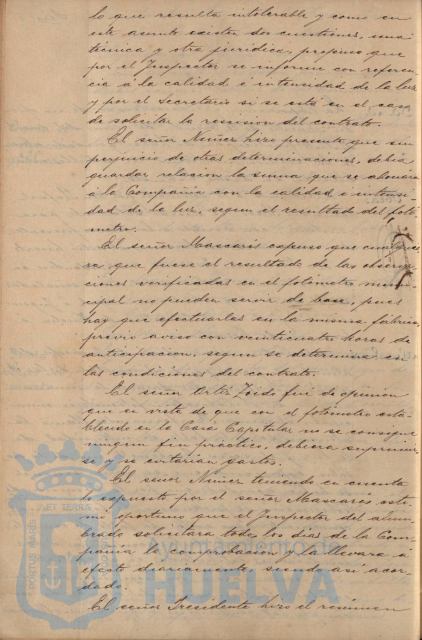 lo que resulta intolerable y como en
este asunto existen dos cuestiones, una
técnica y otra juridica, propuso que
por el Inspector se informe con referen-
cia á la calidad é intensidad de la luz
y por el Secretario si se está en el caso
de solicitar la rescisión del contrato.
El señor Nuñez hizo presente que sin
perjuicio de otras determinaciones, debia
guardar relacion la suma que se abonara
á la Compañia con la calidad é intensi-
dad de la luz, segun el resultado del fotó-
metro.
El señor Mascarós expuso que cualquie-
ra que fuese el resultado de las observa-
ciones verificadas en el fotómetro muni-
cipal no pueden servir de base, pues
hay que efectuarlas en la misma fábrica,
previo aviso con veinticuatro horas de
anticipacion, segun se determina en
las condiciones del contrato.
El señor Ortiz Toido fué de opinion
que en vista de que con el fotómetro esta-
blecido en la Casa Capitular no se consigue
ningun fin práctico, debiera suprimir-
se y se evitarian gastos.
El señor Nuñez teniendo en cuenta
lo expuesto por el señor Mascarós esti-
mó oportuno que el Inspector del alum-
brado solicitara todos los dias de la Com-
pañia la comprobacion y la llevara á
efecto diariamente, siendo así acor-
dado.
El señor Presidente hizo el resúmen
PORTUS MARIS ET TERRAE
Ayuntamiento de
HUELVA